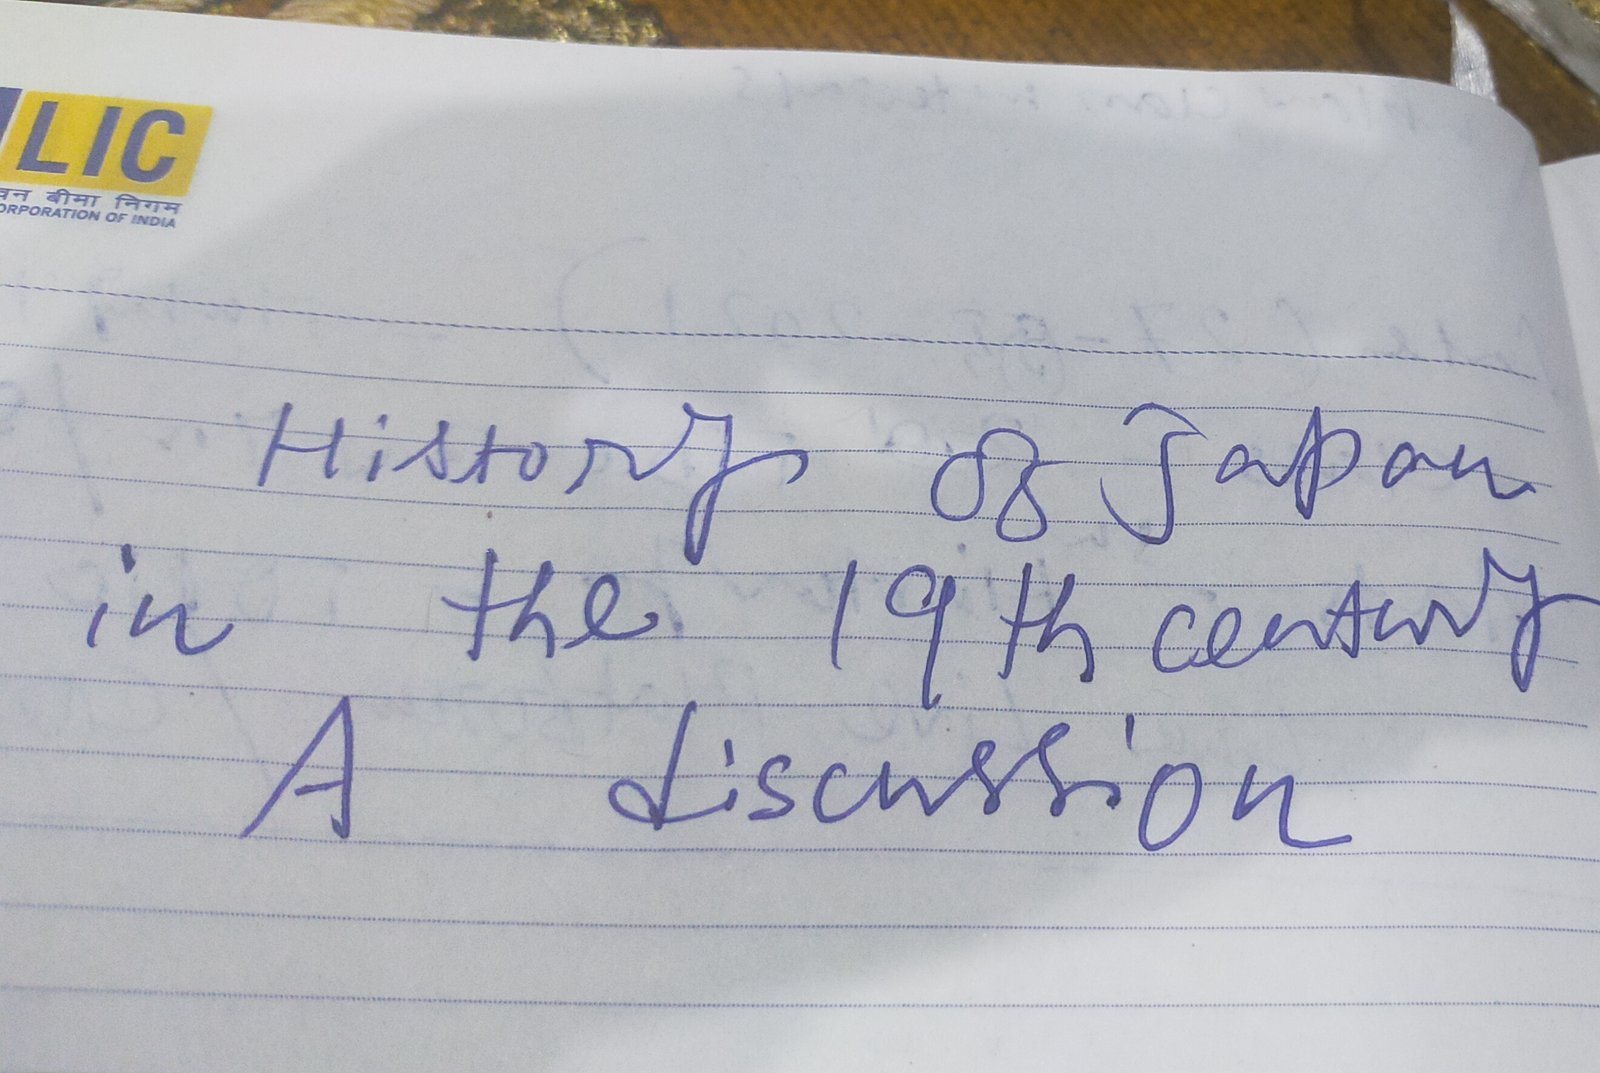 LIC
वन बीमा निगम
ORPORATION OF INDIA
History of Japan
in the 19th century
A discussion